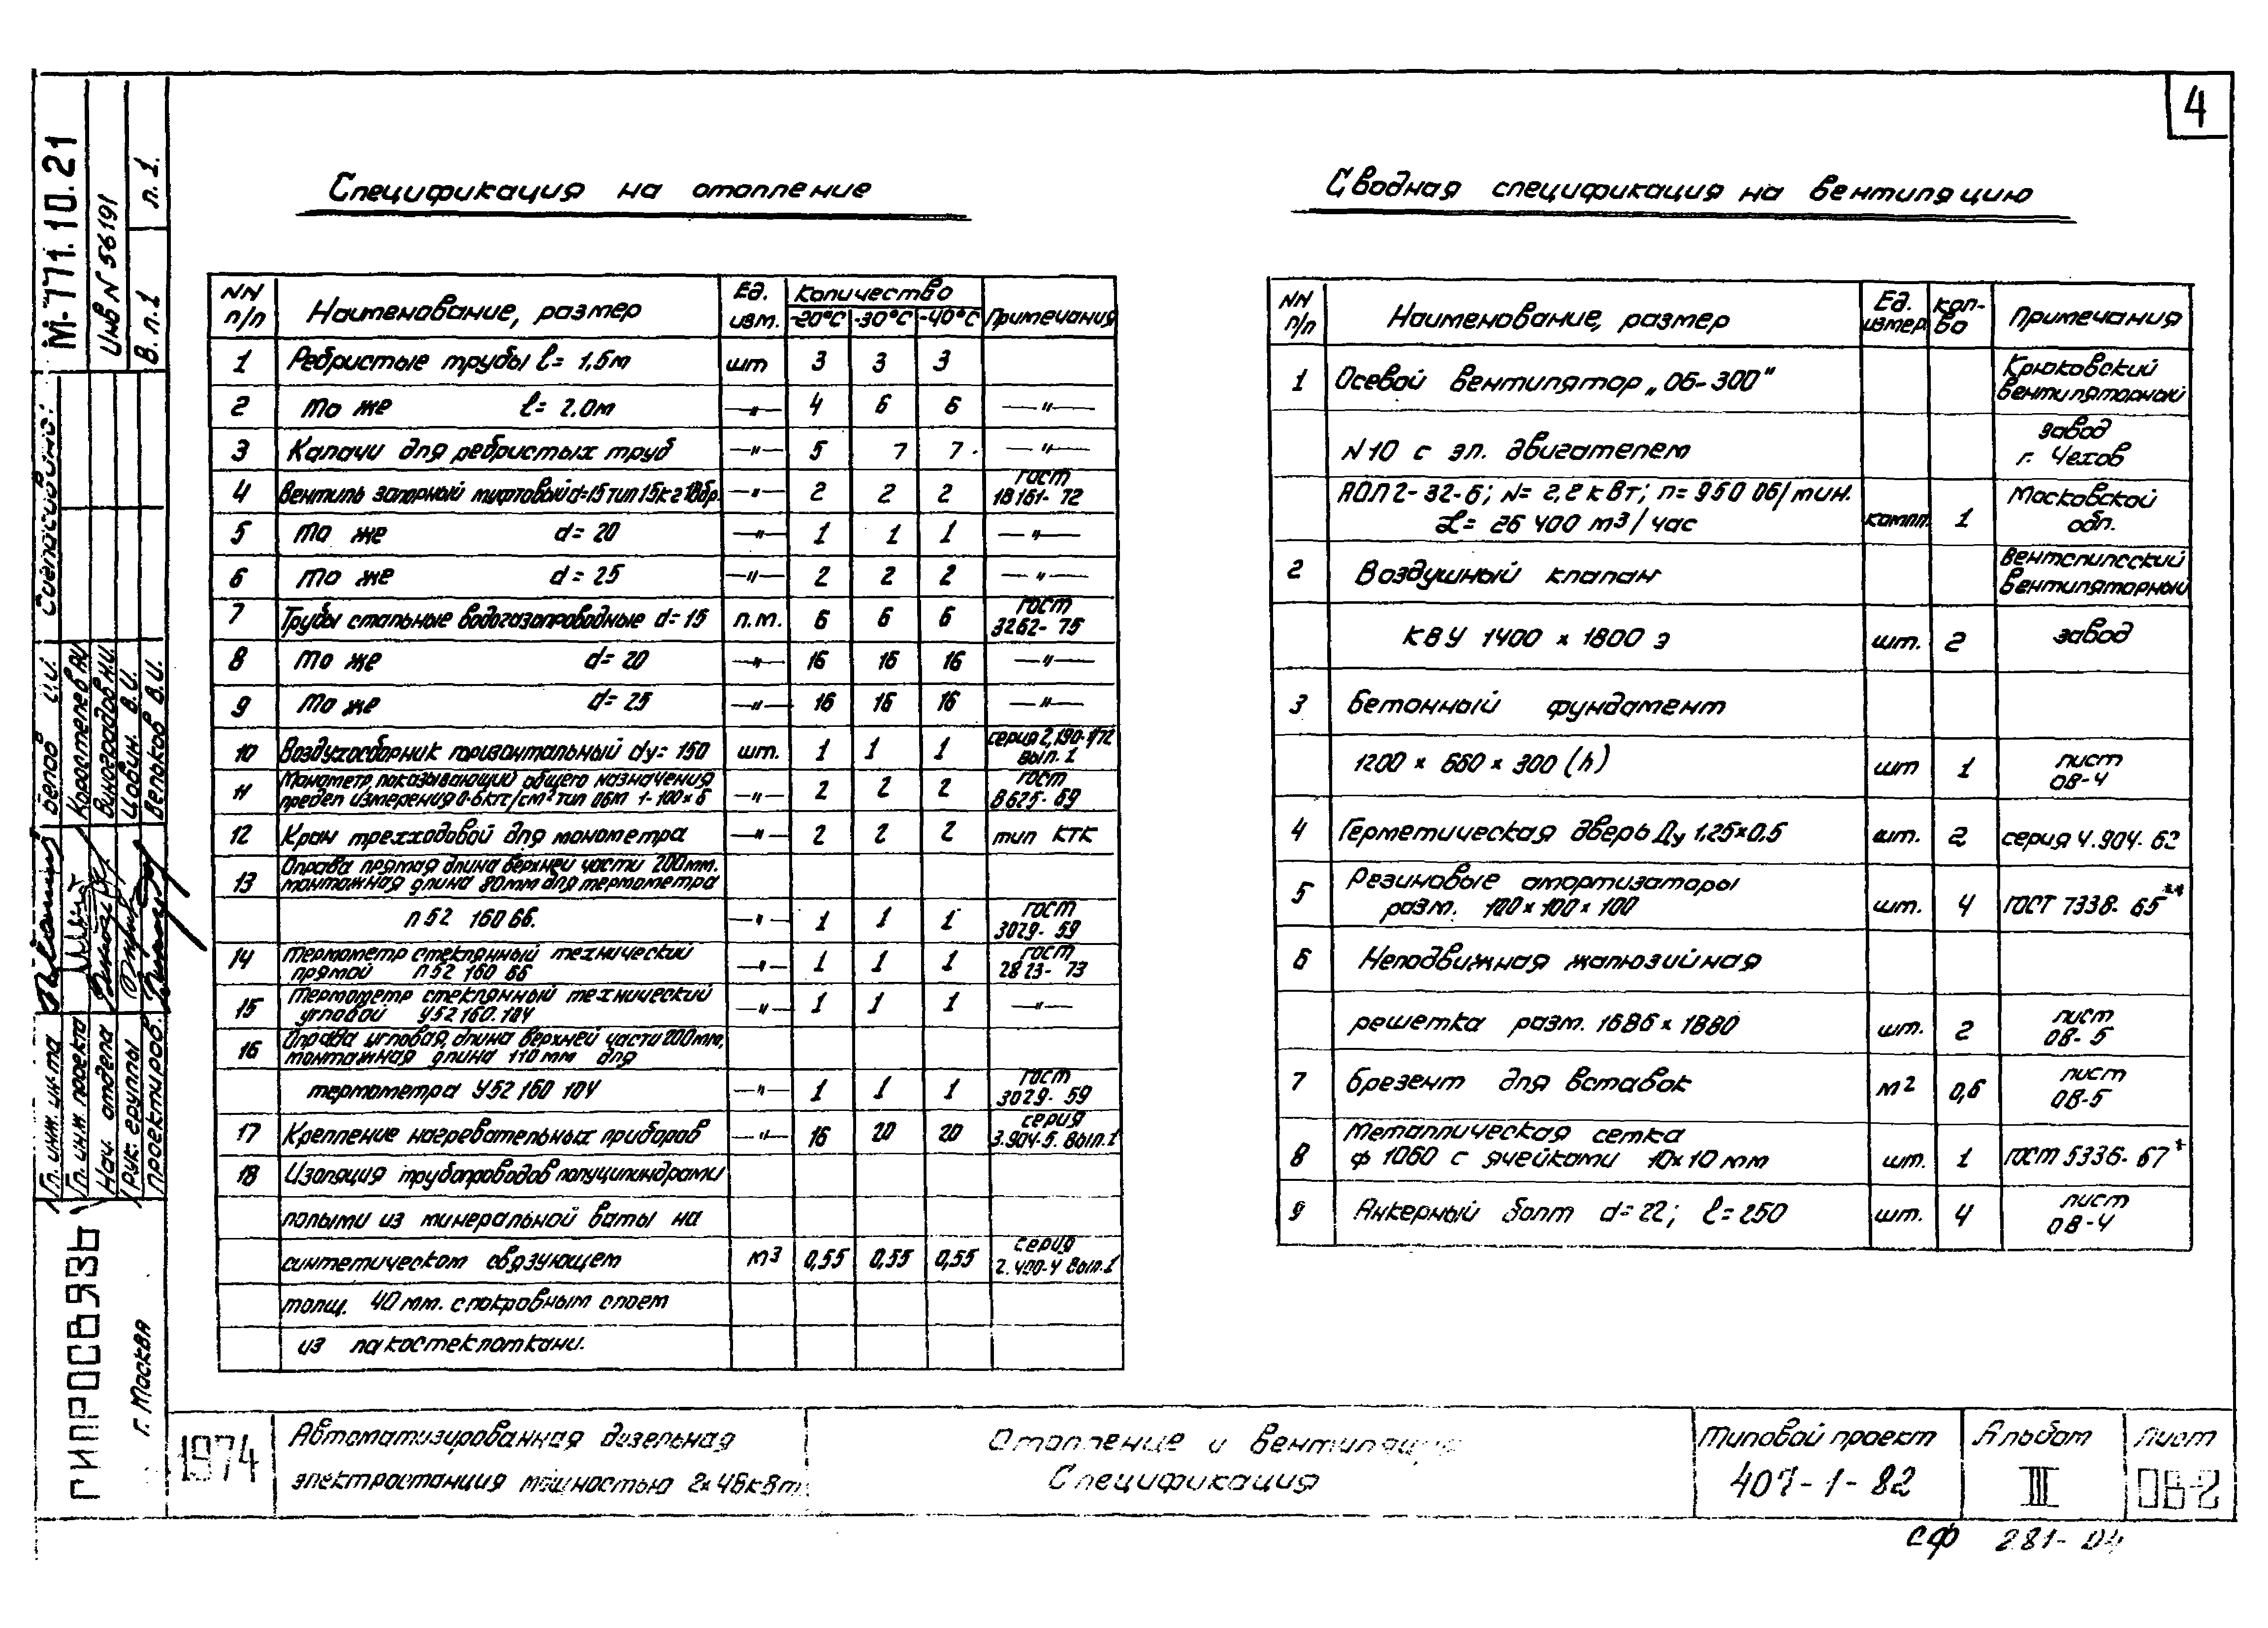 4
Спецификация на отопление
NN п/п | Наименование, размер | Ед. изм. | Количество -20°С | -30°С | -40°С | Примечания
1 Ребристые трубы ℓ= 1,5м шт 3 3 3
2 То же ℓ= 2.0м —"— 4 6 6 —"—
3 Калачи для ребристых труб —"— 5 7 7 —"—
4 Вентиль запорный муфтовый d=15 тип 15кч18бр. —"— 2 2 2 гост 18161-72
5 То же d=20 —"— 1 1 1 —"—
6 То же d=25 —"— 2 2 2 —"—
7 Трубы стальные водогазопроводные d=15 п.м. 6 6 6 гост 3262-75
8 То же d=20 —"— 16 16 16 —"—
9 То же d=25 —"— 16 16 16 —"—
10 Воздухосборник горизонтальный dу=150 шт. 1 1 1 серия 2,190-1/72 вып.1
11 Манометр показывающий общего назначения
предел измерения 0-6кгс/см² тип ОБМ 1-100×6 —"— 2 2 2 гост 8625-69
12 Кран трехходовой для манометра —"— 2 2 2 тип КТК
13 Оправа прямая длина верхней части 200мм.
монтажная длина 80мм для термометра
П52 160 66. —"— 1 1 1 гост 3029-59
14 Термометр стеклянный технический
прямой П52 160 66 —"— 1 1 1 гост 2823-73
15 Термометр стеклянный технический
угловой У52 160.104 —"— 1 1 1 —"—
16 Оправа угловая, длина верхней части 200мм,
монтажная длина 110мм для
термометра У52 160 104 —"— 1 1 1 гост 3029-59
17 Крепление нагревательных приборов —"— 16 20 20 серия 3.904-5. Вып.1
18 Изоляция трубопроводов полуцилиндрами
полыми из минеральной ваты на
синтетическом связующем м3 0,55 0,55 0,55 серия 2.400-4 Вып.1
толщ. 40мм. с покровным слоем
из лакостеклоткани.
Сводная спецификация на вентиляцию
NN п/п | Наименование, размер | Ед. измер | кол-во | Примечания
1 Осевой вентилятор „06-300" Крюковский вентиляторный
N10 с эл. двигателем завод г. Чехов
АОЛ2-32-6; N= 2,2 кВт; n= 950 об/мин.
L= 26 400 м3/час компл. 1 Московской обл.
2 Воздушный клапан Вентспилсский вентиляторный
КВУ 1400 × 1800 э шт. 2 завод
3 Бетонный фундамент
1200 × 660 × 300 (h) шт 1 лист ОВ-4
4 Герметическая дверь Ду 1.25×0.5 шт. 2 серия 4.904-62
5 Резиновые амортизаторы
разм. 100×100×100 шт. 4 ГОСТ 7338-65**
6 Неподвижная жалюзийная
решетка разм. 1686×1880 шт. 2 лист ОВ-5
7 брезент для вставок м2 0,6 лист ОВ-5
8 Металлическая сетка
ф 1060 с ячейками 10×10мм шт. 1 ГОСТ 5336-67*
9 Анкерный болт d=22; ℓ=250 шт. 4 лист ОВ-4
М-771.10.21
Инв N 56191
В.п.1 п.1.
Согласовано:
Гл. инж. ин-та Белов И.И.
Гл. инж. проекта Коростелев
Нач. отдела Виноградов Н.И.
Рук. группы Цовин. В.И.
Проектиров. Вельков В.И.
ГИПРОСВЯЗЬ
г. Москва
1974
Автоматизированная дизельная
электростанция мощностью 2×48кВт.
Отопление и вентиляция
Спецификация
Типовой проект
407-1-82
Альбом
III
Лист
ОВ-2
СФ 281-04